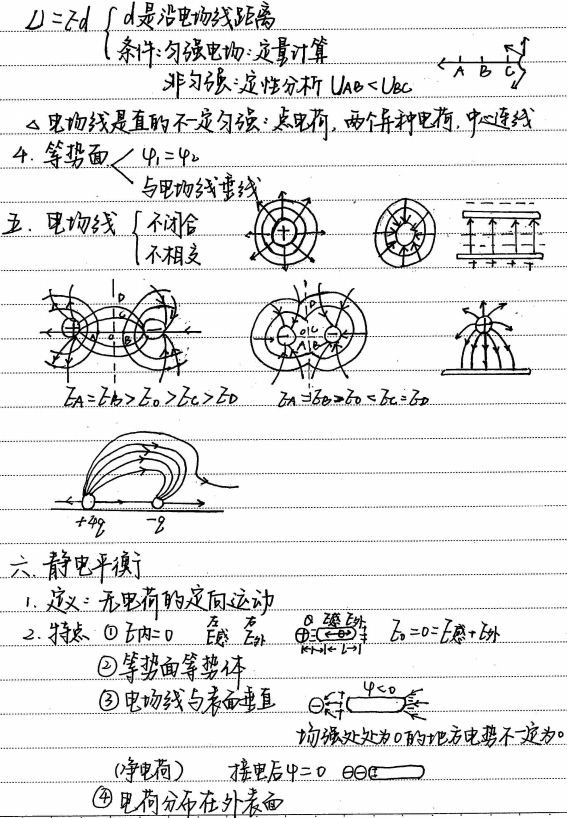 U=Ed { d是沿电场线距离
条件:匀强电场:定量计算
非匀强:定性分析 UAB<UBC
A B C
△电场线是直的不一定匀强:点电荷,两个异种电荷,中心连线
4. 等势面 < φ1=φ2
与电场线垂线
五. 电场线 { 不闭合
不相交
+
+ + + +
+ A O B C D −
− A O B C D −
EA=EB>E0>EC>ED
+4q -q
六.静电平衡
1. 定义:无电荷的定向运动
2. 特点 ①E内=0 左E感 右E外 Q E感 E外 E0=0=E感+E外
②等势面等势体
③电场线与表面垂直 φ<0
场强处处为0的地方电势不一定为0
(净电荷) 接电后φ=0
④电荷分布在外表面